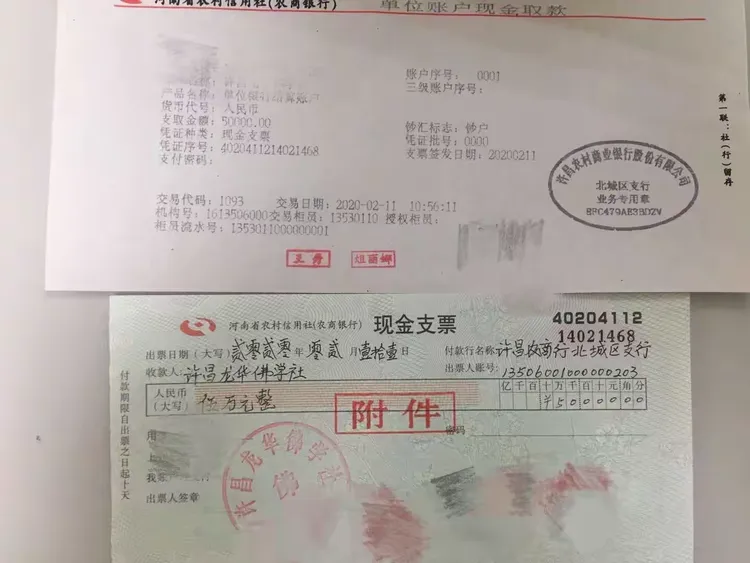 河南省农村信用社(农商银行) 单位账户现金取款
账户序号： 0001
三级账户序号：
产品名称：单位银行结算账户
货币代号：人民币
支取金额：50000.00 钞汇标志：钞户
凭证种类：现金支票 凭证批号：0000
凭证序号：4020411214021468 支票签发日期：20200211
支付密码：
第一联：社(行)留存
许昌农村商业银行股份有限公司
北城区支行
业务专用章
交易代码：1093 交易日期：2020-02-11 10:56:11
机构号：1613506000交易柜员：13530110 授权柜员：
柜员流水号：1353011000000001
河南省农村信用社(农商银行) 现金支票 40204112
14021468
出票日期（大写）贰零贰零年 零贰月壹拾壹日 付款行名称：许昌农商行北城区支行
收款人：许昌龙华佛学社 出票人账号：13506001000000203
人民币
（大写） 伍万元整
亿千百十万千百十元角分
¥5000000
附件
用
密码
出票人签章
许昌龙华佛学社
佛
付款期限自出票之日起十天